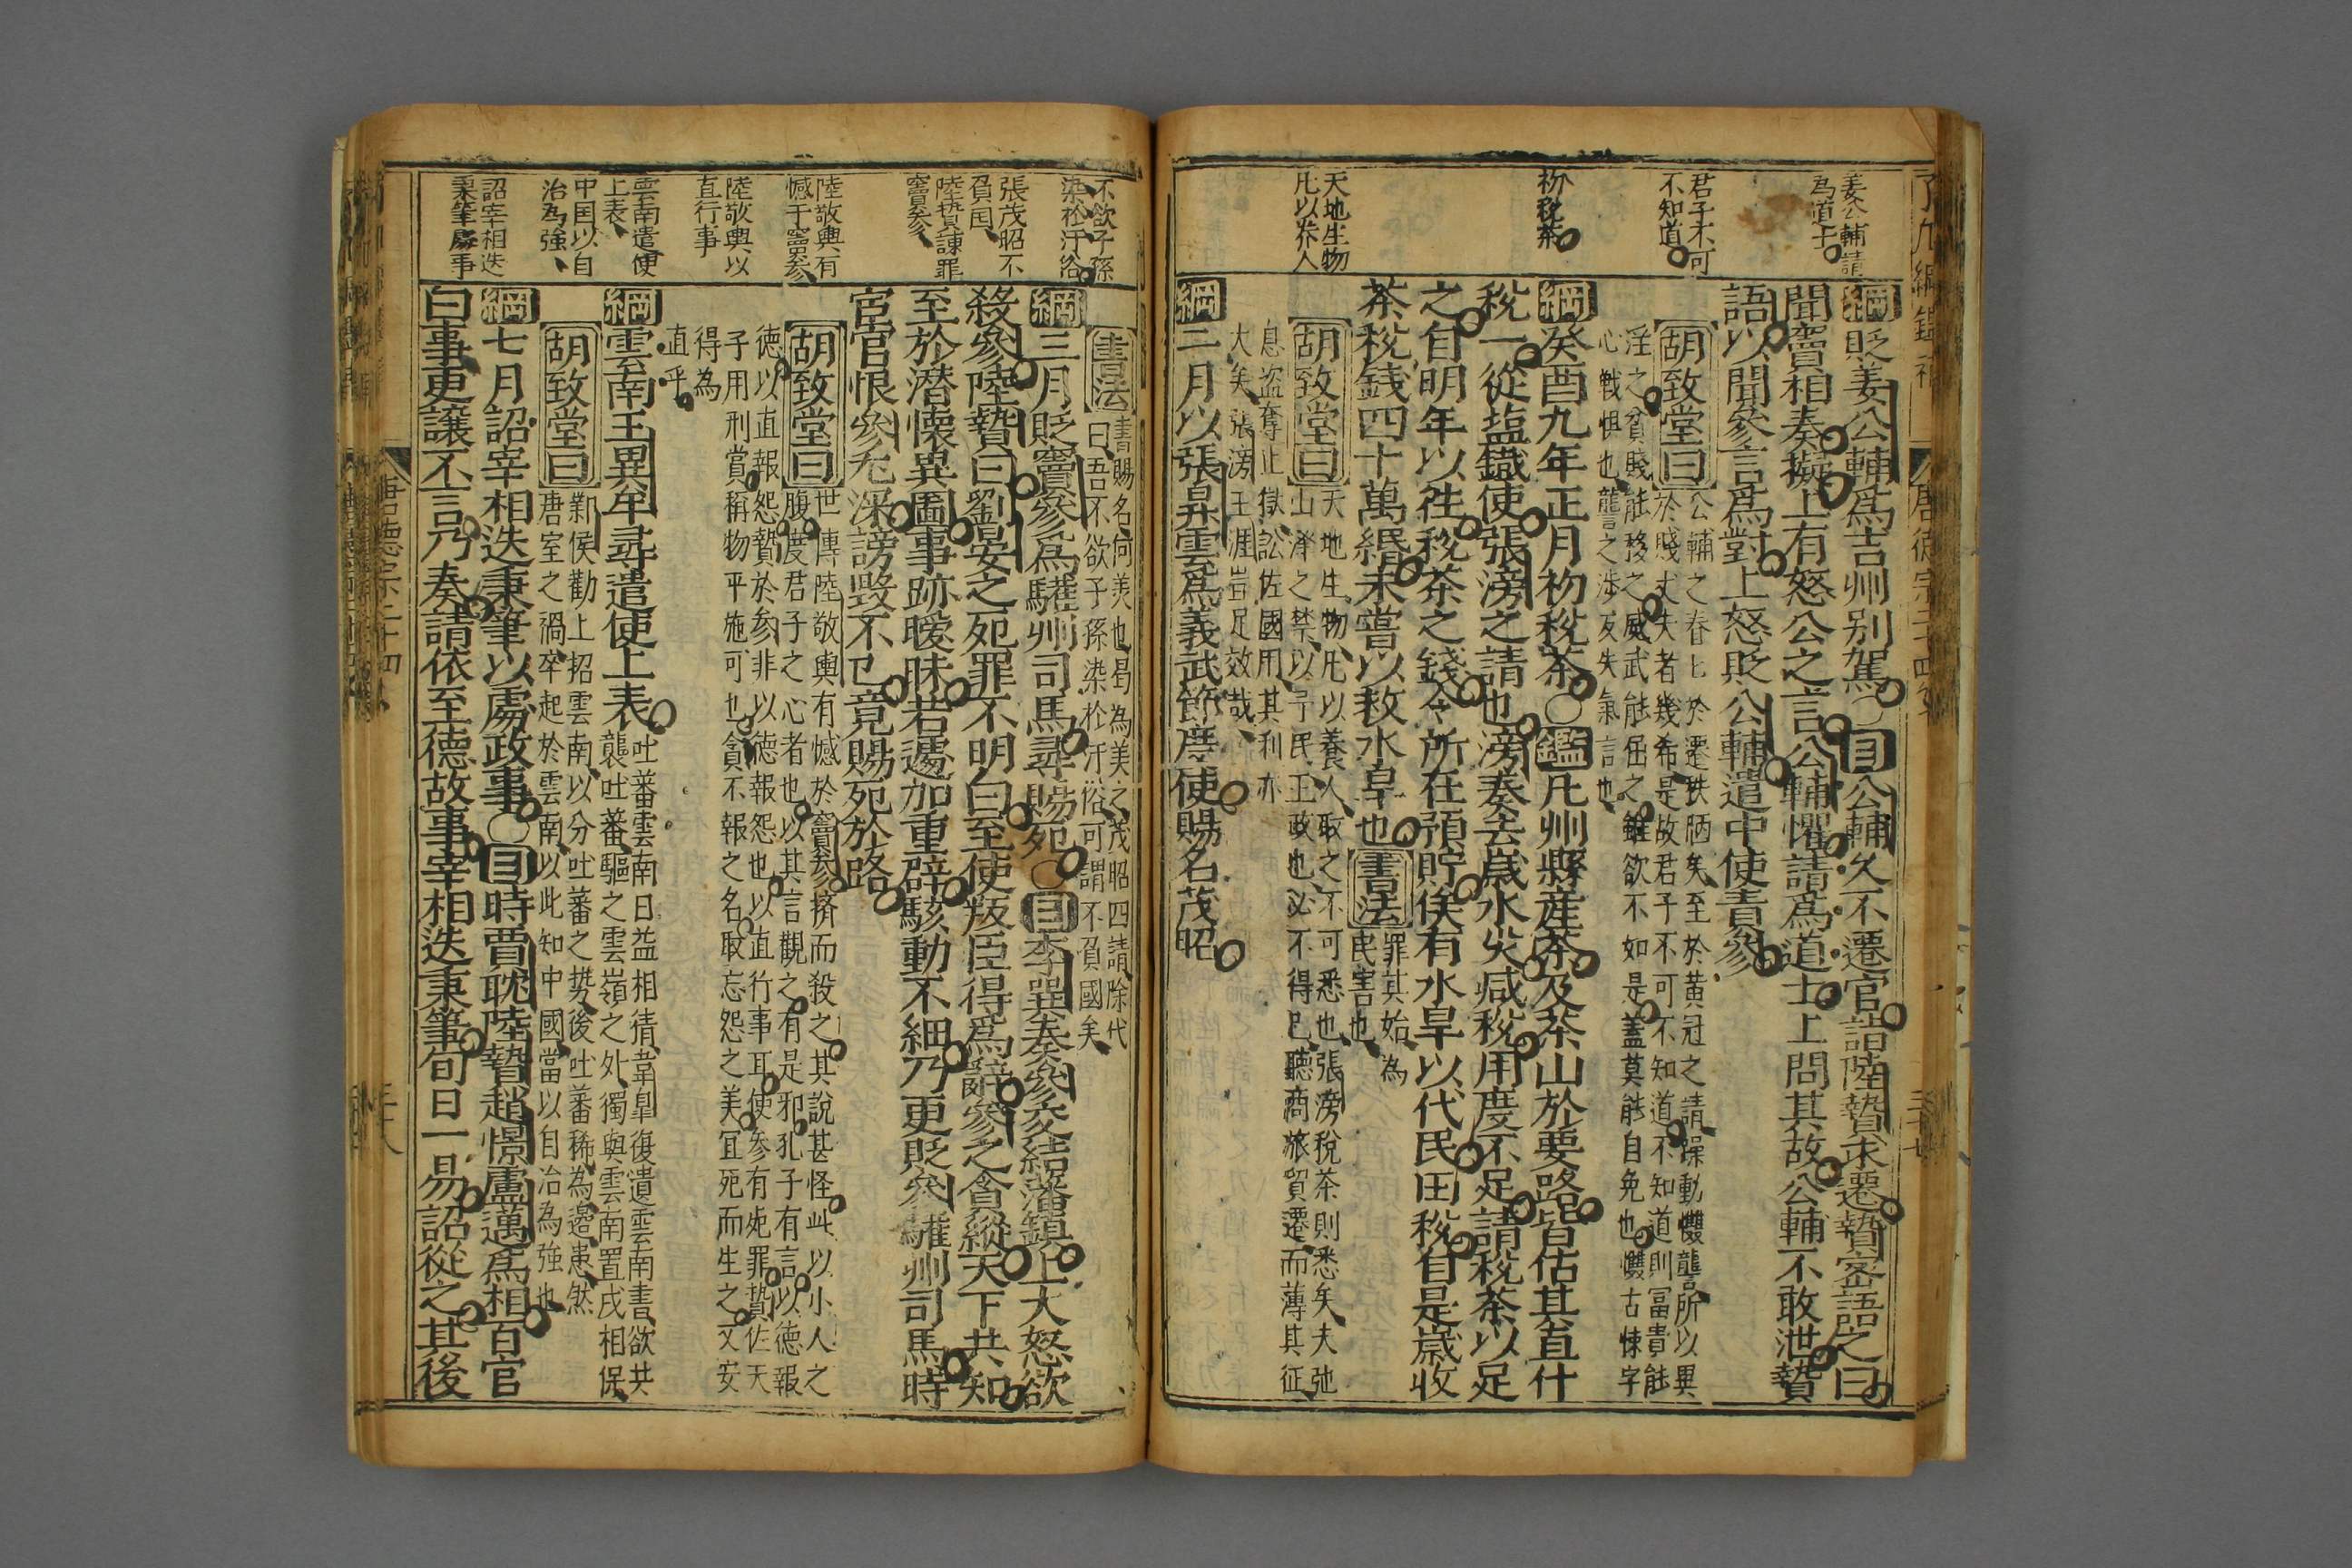 姜公輔請
為道士
君子不可
不知道
初稅茶
天地生物
凡以养人
綱貶姜公輔爲吉州别駕○目公輔久不遷官詣陸贄求遷贄密語之曰
聞竇相奏擬上有怒公之言公輔懼請爲道士上問其故公輔不敢泄贄
語以聞參言爲對上怒貶公輔遣中使責參
胡致堂曰
公輔之春比於遷秩陋矣至於黄冠之請躁動戁讋所以異
於賤丈夫者幾希是故君子不可不知道不知道則冨貴能
淫之貧賤能移之威武能屈之雖欲不如是蓋莫能自免也戁古悚字
心戰惧也讋之涉反失氣言也
綱癸酉九年正月初稅茶○鑑凡州縣産茶及茶山於要路皆估其直什
稅一從塩鐡使張滂之請也滂奏去歲水灾减稅用度不足請稅茶以足
之自明年以往稅茶之錢令所在預貯俟有水旱以代民田稅自是歲收
茶稅錢四十萬緡未嘗以救水旱也書法
罪其始為
民害也
胡致堂曰
天地生物凡以養人取之不可悉也張滂稅茶則悉矣夫弛
山澤之禁以予民王政也必不得已聽商旅貿遷而薄其征
息盗奪止獄訟佐國用其利亦
大矣張滂王涯豈足效哉
綱二月以張昇雲爲義武節度使賜名茂昭
唐德宗二十四年
不欲子孫
染於汙俗
張茂昭不
負囯
陸贄諫罪
竇參
陸敬輿有
憾于竇參
陸敬輿以
直行事
雲南遣使
上表
中囯以自
治為強
詔宰相迭
秉筆處事
書法
書賜名何美也曷為美之茂昭四請除代
曰吾不欲子孫染於汙俗可謂不負國矣
綱三月貶竇參為驩州司馬尋賜死○目李巽奏參交結藩鎮上大怒欲
殺參陸贄曰劉晏之死罪不明白至使叛臣得爲辭參之貪縱天下共知
至於潜懷異圖事跡曖昧若遽加重辟駭動不細乃更貶參驩州司馬時
宦官恨參尤深謗毀不已竟賜死於路
胡致堂曰
世傳陸敬輿有憾於竇參擠而殺之其說甚怪此以小人之
腹度君子之心者也以其言觀之有是邪孔子有言以德報
德以直報怨贄於參非以德報怨也以直行事耳使參有死罪贄佐天
子用刑賞稱物平施可也貪不報之名取忘怨之美冝死而生之又安
得為
直乎
綱雲南王異牟尋遣使上表
吐蕃雲南日益相猜韋皐復遺雲南書欲共
襲吐蕃驅之雲嶺之外獨與雲南置戍相保
胡致堂曰
新侯勸上招雲南以分吐蕃之势後吐蕃稀為邊患然
唐室之禍卒起於雲南以此知中國當以自治為強也
綱七月詔宰相迭秉筆以處政事○目時賈耽陸贄趙憬盧邁爲相百官
白事更讓不言乃奏請依至德故事宰相迭秉筆旬日一易詔從之其後
唐德宗二十四